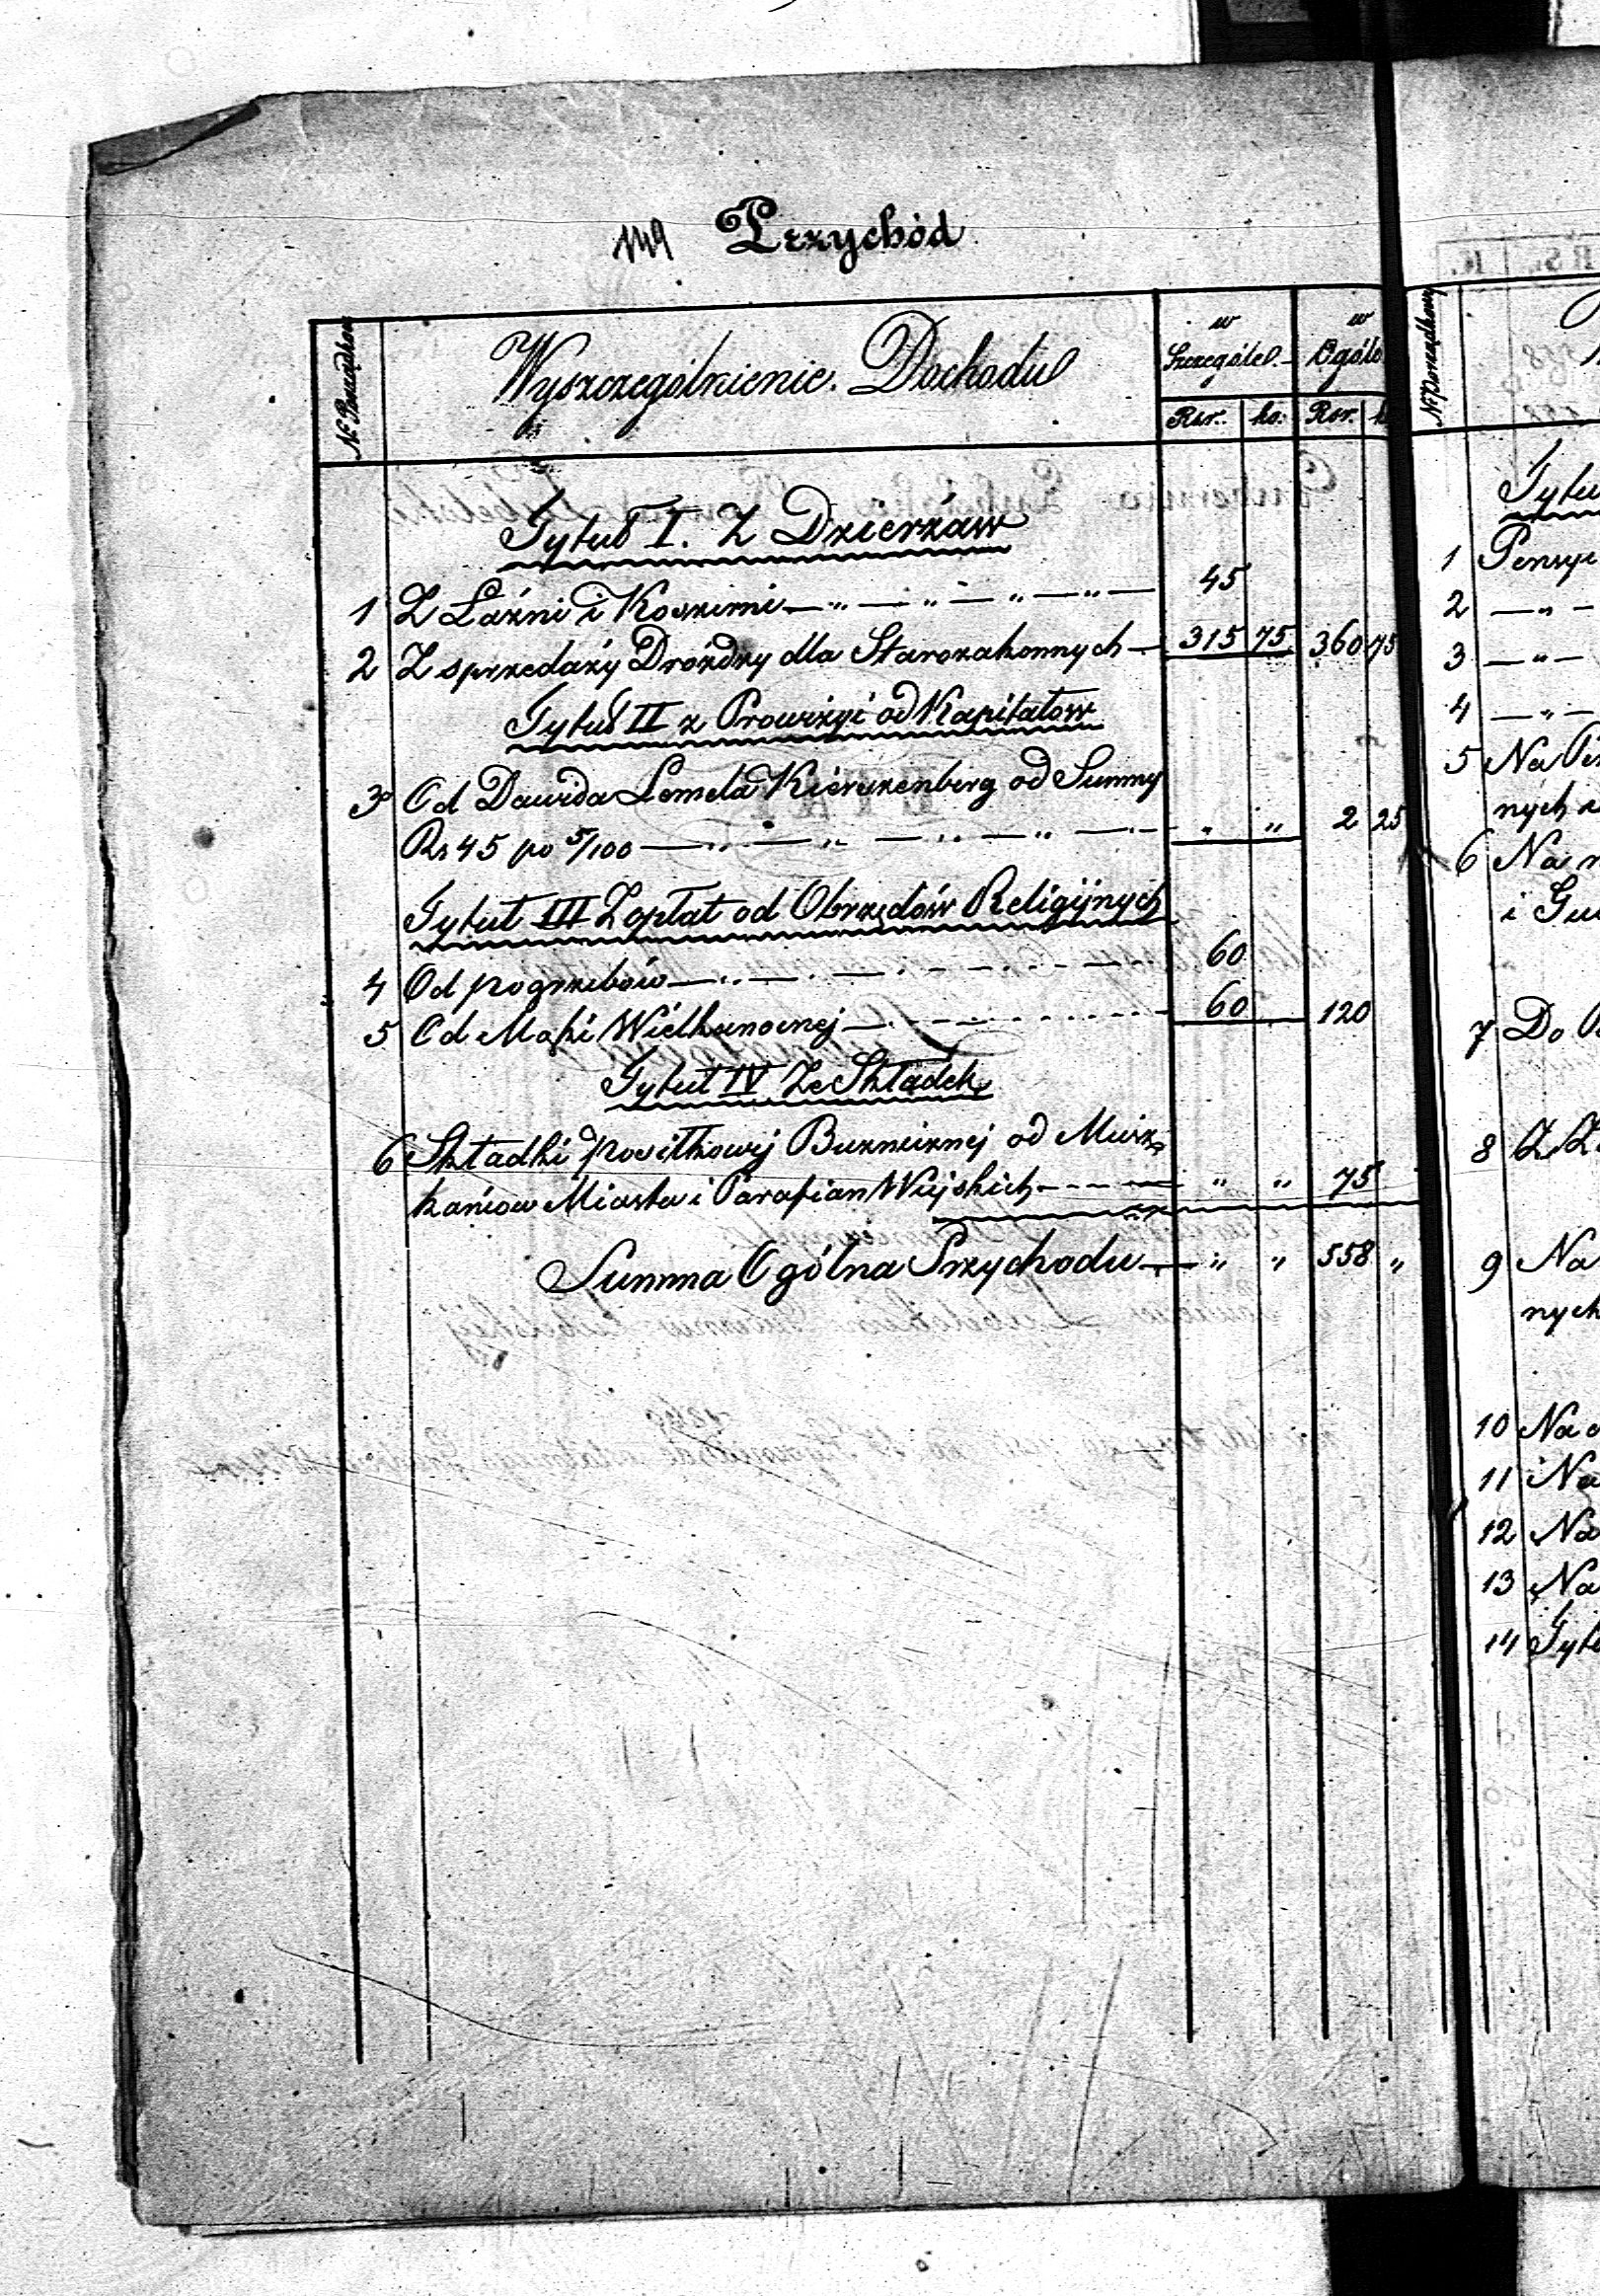 119 Przychód
Nr Porządkow
Wyszczególnienie Dochodu
w Szczególe
w Ogóle
Rsr. ko. Rsr. k
Tytuł I. Z Dzierżaw
1 Z Łaźni i Koszerni — „ — „ — „ — „ — 45
2 Z sprzedaży Drożdży dla Starozakonnych — 315 75 360 75
Tytuł II z Prowizyi od Kapitałów
3 Od Dawida Lemela od Summy
Rs 45 po 5/100 — „ — „ — „ — „ „ 2 25
Tytuł III Z opłat od Obrzędów Religijnych
4 Od pogrzebów — „ — 60
5 Od Mąki Wielkanocnej — 60 120
Tytuł IV Ze Składek
6 Składki posiłkowej Buznicznej od Miesz
kańców Miasta i Parafian Wiejskich — „ „ 75
Summa Ogólna Przychodu — „ „ 558 „
Nr Porządkowy
Tytu
1 Pensyi
2 — „ —
3 — „ —
4 — „ —
5 Na
nych
6 Na
i
7 Do
8 Z
9 Na
nych
10 Na
11 Na
12 Na
13 Na
14 Tyt